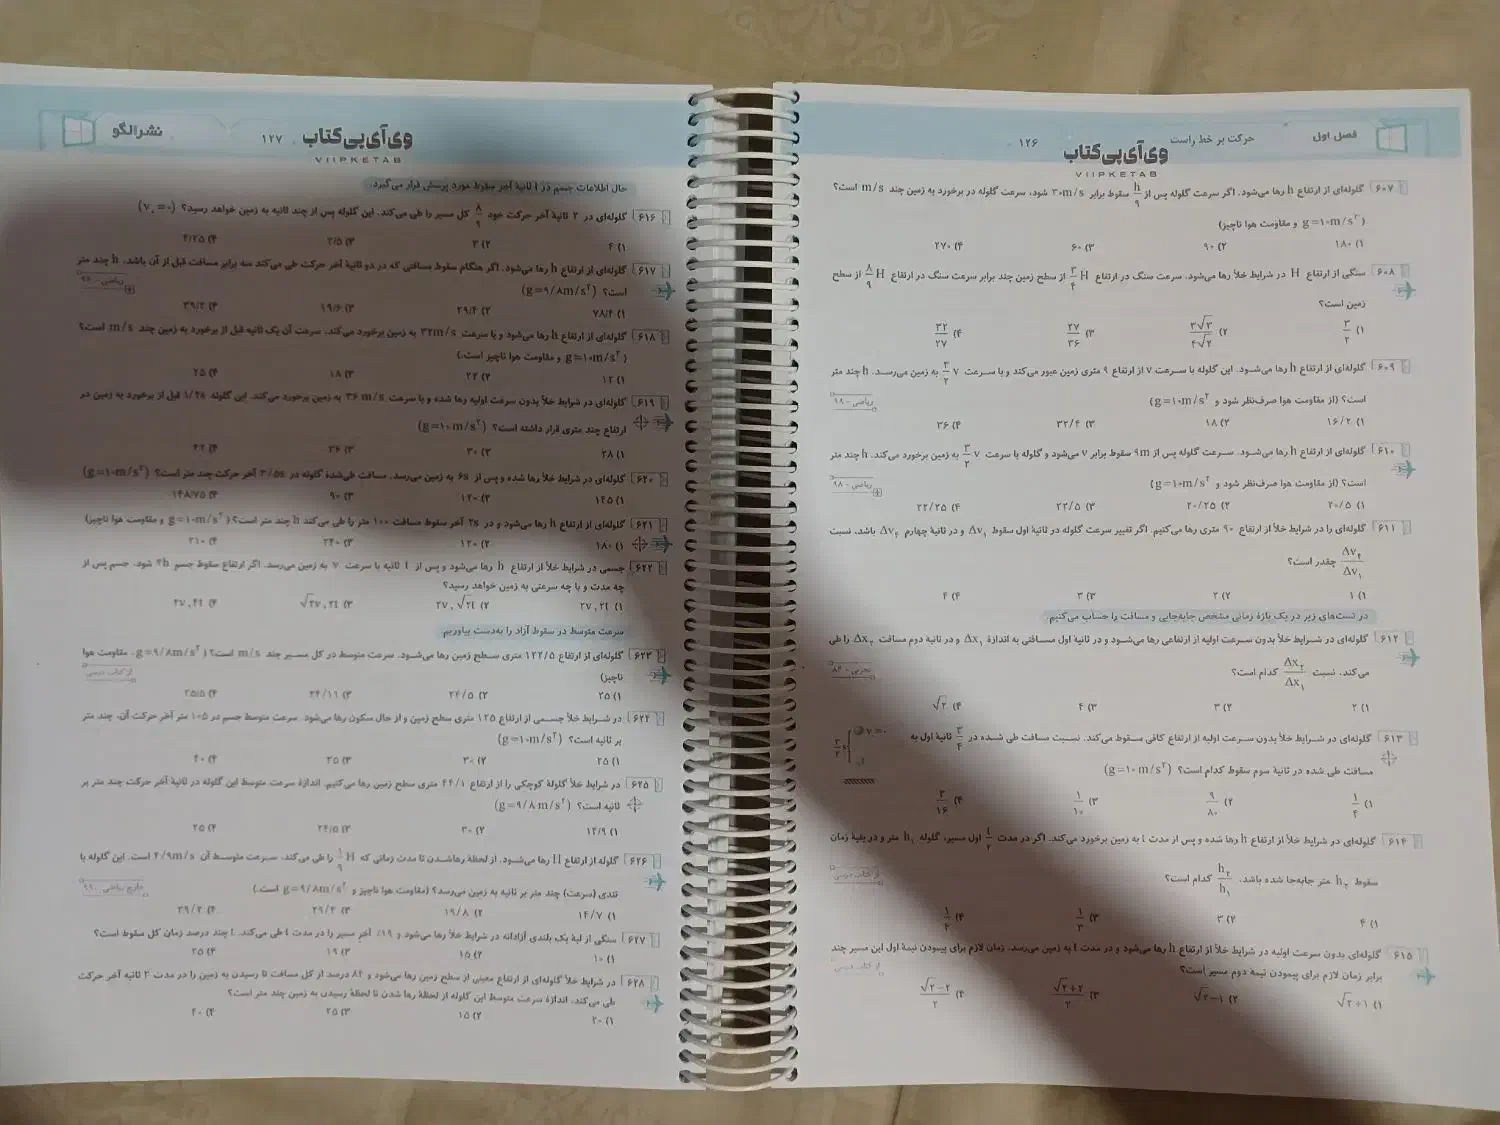 فصل اول
حرکت بر خط راست
۱۲۶
وی‌آی‌پی‌کتاب
VIIPKETAB
۶۰۷ گلوله‌ای از ارتفاع h رها می‌شود. اگر سرعت گلوله پس از h/۹ سقوط برابر ۳۰m/s شود، سرعت گلوله در برخورد به زمین چند m/s است؟
(g=۱۰m/s² و مقاومت هوا ناچیز)
۱) ۱۸۰ ۲) ۹۰ ۳) ۶۰ ۴) ۲۷۰
۶۰۸ سنگی از ارتفاع H در شرایط خلأ رها می‌شود. سرعت سنگ در ارتفاع ۳/۴ H از سطح زمین چند برابر سرعت سنگ در ارتفاع ۸/۹ H از سطح
زمین است؟
۱) ۳/۲ ۲) ۳√۳/۴√۲ ۳) ۲۷/۳۶ ۴) ۳۲/۲۷
۶۰۹ گلوله‌ای از ارتفاع h رها می‌شود. این گلوله با سرعت v از ارتفاع ۹ متری زمین عبور می‌کند و با سرعت ۳/۲ v به زمین می‌رسد. h چند متر
است؟ (از مقاومت هوا صرف‌نظر شود و g=۱۰m/s²)
ریاضی - ۹۸
۱) ۱۶/۲ ۲) ۱۸ ۳) ۳۲/۴ ۴) ۳۶
۶۱۰ گلوله‌ای از ارتفاع h رها می‌شود. سرعت گلوله پس از ۹m سقوط برابر v می‌شود و گلوله با سرعت ۳/۲ v به زمین برخورد می‌کند. h چند متر
است؟ (از مقاومت هوا صرف‌نظر شود و g=۱۰m/s²)
ریاضی - ۹۸
۱) ۲۰/۵ ۲) ۲۰/۲۵ ۳) ۲۲/۵ ۴) ۲۲/۲۵
۶۱۱ گلوله‌ای را در شرایط خلأ از ارتفاع ۹۰ متری رها می‌کنیم. اگر تغییر سرعت گلوله در ثانیهٔ اول سقوط Δv۱ و در ثانیهٔ چهارم Δv۴ باشد، نسبت
Δv۴/Δv۱ چقدر است؟
۱) ۱ ۲) ۲ ۳) ۳ ۴) ۴
در تست‌های زیر در یک بازهٔ زمانی مشخص جابه‌جایی و مسافت را حساب می‌کنیم.
۶۱۲ گلوله‌ای در شرایط خلأ بدون سرعت اولیه از ارتفاعی رها می‌شود و در ثانیهٔ اول مسافتی به اندازهٔ Δx۱ و در ثانیهٔ دوم مسافت Δx۲ را طی
می‌کند. نسبت Δx۲/Δx۱ کدام است؟
تجربی - ۸۴
۱) ۲ ۲) ۳ ۳) ۴ ۴) √۲
۶۱۳ گلوله‌ای در شرایط خلأ بدون سرعت اولیه از ارتفاع کافی سقوط می‌کند. نسبت مسافت طی شده در ۳/۴ ثانیهٔ اول به
مسافت طی شده در ثانیهٔ سوم سقوط کدام است؟ (g=۱۰m/s²)
v=۰
۱) ۱/۴ ۲) ۹/۸۰ ۳) ۱/۱۰ ۴) ۳/۱۶
۶۱۴ گلوله‌ای در شرایط خلأ از ارتفاع h رها شده و پس از مدت t به زمین برخورد می‌کند. اگر در مدت t/۲ اول مسیر، گلوله h۱ متر و در بقیهٔ زمان
سقوط h۲ متر جابه‌جا شده باشد، h۲/h۱ کدام است؟
از کتاب درسی
۱) ۴ ۲) ۳ ۳) ۱/۳ ۴) ۱/۴
۶۱۵ گلوله‌ای بدون سرعت اولیه در شرایط خلأ از ارتفاع h رها می‌شود و در مدت t به زمین می‌رسد. زمان لازم برای پیمودن نیمهٔ اول این مسیر چند
برابر زمان لازم برای پیمودن نیمهٔ دوم مسیر است؟
از کتاب درسی
۱) √۲+۱ ۲) √۲−۱ ۳) √۲+۲/۲ ۴) √۲−۲/۲
نشرالگو
۱۲۷
وی‌آی‌پی‌کتاب
VIIPKETAB
حال اطلاعات جسم در t ثانیهٔ آخر سقوط مورد پرسش قرار می‌گیرد.
۶۱۶ گلوله‌ای در ۲ ثانیهٔ آخر حرکت خود ۸/۹ کل مسیر را طی می‌کند. این گلوله پس از چند ثانیه به زمین خواهد رسید؟ (v۰=۰)
۱) ۴ ۲) ۳ ۳) ۲/۵ ۴) ۲/۲۵
۶۱۷ گلوله‌ای از ارتفاع h رها می‌شود. اگر هنگام سقوط مسافتی که در دو ثانیهٔ آخر حرکت طی می‌کند سه برابر مسافت قبل از آن باشد، h چند متر
است؟ (g=۹/۸m/s²)
۱) ۷۸/۴ ۲) ۲۹/۴ ۳) ۱۹/۶ ۴) ۳۹/۲
۶۱۸ گلوله‌ای از ارتفاع h رها می‌شود و با سرعت ۳۲m/s به زمین برخورد می‌کند. سرعت آن یک ثانیه قبل از برخورد به زمین چند m/s است؟
(g=۱۰m/s² و مقاومت هوا ناچیز است.)
۱) ۱۲ ۲) ۲۲ ۳) ۱۸ ۴) ۲۵
۶۱۹ گلوله‌ای در شرایط خلأ بدون سرعت اولیه رها شده و با سرعت ۳۶ m/s به زمین برخورد می‌کند. این گلوله ۱/۲s قبل از برخورد به زمین در
ارتفاع چند متری قرار داشته است؟ (g=۱۰m/s²)
۱) ۲۸ ۲) ۳۰ ۳) ۳۶ ۴) ۴۲
۶۲۰ گلوله‌ای در شرایط خلأ از ارتفاع h رها شده و پس از ۶s به زمین می‌رسد. مسافت طی‌شدهٔ گلوله در ۳/۵s آخر حرکت چند متر است؟ (g=۱۰m/s²)
۱) ۱۴۵ ۲) ۱۲۰ ۳) ۹۰ ۴) ۱۴۸/۷۵
۶۲۱ گلوله‌ای از ارتفاع h رها می‌شود و در ۲s آخر سقوط مسافت ۱۰۰ متر را طی می‌کند h چند متر است؟ (g=۱۰m/s² و مقاومت هوا ناچیز)
۱) ۱۸۰ ۲) ۱۲۰ ۳) ۲۴۰ ۴) ۲۱۰
۶۲۲ جسمی در شرایط خلأ از ارتفاع h رها می‌شود و پس از t ثانیه با سرعت v به زمین می‌رسد. اگر ارتفاع سقوط جسم ۲h شود، جسم پس از
چه مدت و با چه سرعتی به زمین خواهد رسید؟
۱) ۲v , ۲t ۲) ۲v , √۲t ۳) √۲v , ۲t ۴) ۲v , ۴t
سرعت متوسط در سقوط آزاد را به‌دست بیاوریم.
۶۲۳ گلوله‌ای از ارتفاع ۱۲۲/۵ متری سطح زمین رها می‌شود. سرعت متوسط در کل مسیر چند m/s است؟ (g=۹/۸m/s²، مقاومت هوا
ناچیز)
از کتاب درسی
۱) ۲۵ ۲) ۲۴/۵ ۳) ۲۴/۱۱ ۴) ۲۵/۵
۶۲۴ در شرایط خلأ جسمی از ارتفاع ۱۲۵ متری سطح زمین و از حال سکون رها می‌شود. سرعت متوسط جسم در ۱۰۵ متر آخر حرکت آن، چند متر
بر ثانیه است؟ (g=۱۰m/s²)
۱) ۲۵ ۲) ۳۰ ۳) ۳۵ ۴) ۴۰
۶۲۵ در شرایط خلأ گلولهٔ کوچکی را از ارتفاع ۴۴/۱ متری سطح زمین رها می‌کنیم. اندازهٔ سرعت متوسط این گلوله در ثانیهٔ آخر حرکت چند متر بر
ثانیه است؟ (g=۹/۸m/s²)
۱) ۱۴/۹ ۲) ۳۰ ۳) ۲۴/۵ ۴) ۲۵
۶۲۶ گلوله از ارتفاع H رها می‌شود. از لحظهٔ رهاشدن تا مدت زمانی که ۱/۹ H را طی می‌کند، سرعت متوسط آن ۴/۹m/s است. این گلوله با
تندی (سرعت) چند متر بر ثانیه به زمین می‌رسد؟ (مقاومت هوا ناچیز و g=۹/۸m/s² است.)
خارج ریاضی - ۹۹
۱) ۱۴/۷ ۲) ۱۹/۸ ۳) ۲۹/۴ ۴) ۳۹/۲
۶۲۷ سنگی از لبهٔ یک بلندی آزادانه در شرایط خلأ رها می‌شود و ۱۹٪ آخر مسیر را در مدت t طی می‌کند. t چند درصد زمان کل سقوط است؟
۱) ۱۰ ۲) ۱۵ ۳) ۱۹ ۴) ۲۵
۶۲۸ در شرایط خلأ گلوله‌ای از ارتفاع معینی از سطح زمین رها می‌شود و ۸۴ درصد از کل مسافت تا رسیدن به زمین را در مدت ۳ ثانیه آخر حرکت
طی می‌کند. اندازهٔ سرعت متوسط این گلوله از لحظهٔ رها شدن تا لحظهٔ رسیدن به زمین چند متر است؟
۱) ۲۰ ۲) ۱۵ ۳) ۲۵ ۴) ۴۰